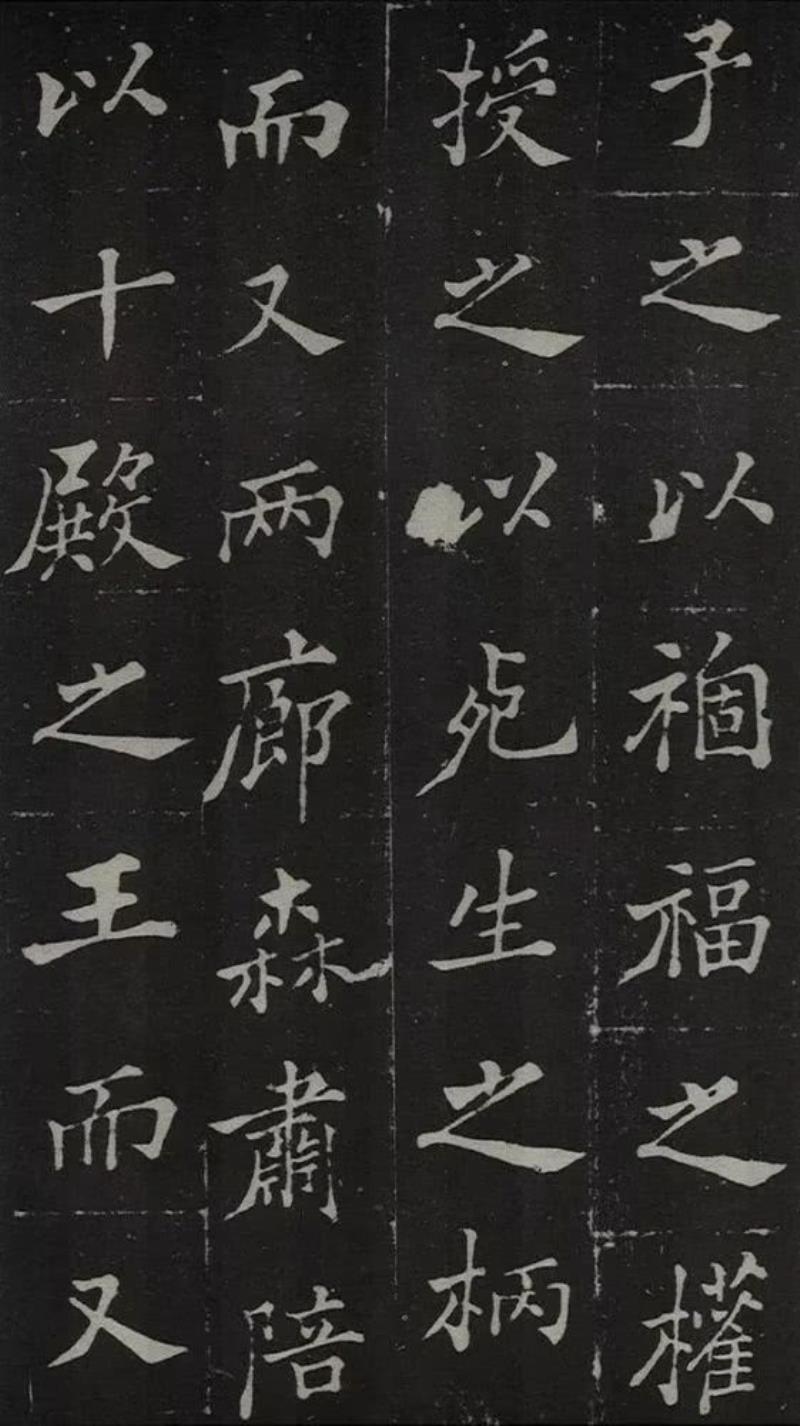 子之以祸福之權
授之以死生之柄
而又两廊森肅陪
以十殿之王而又